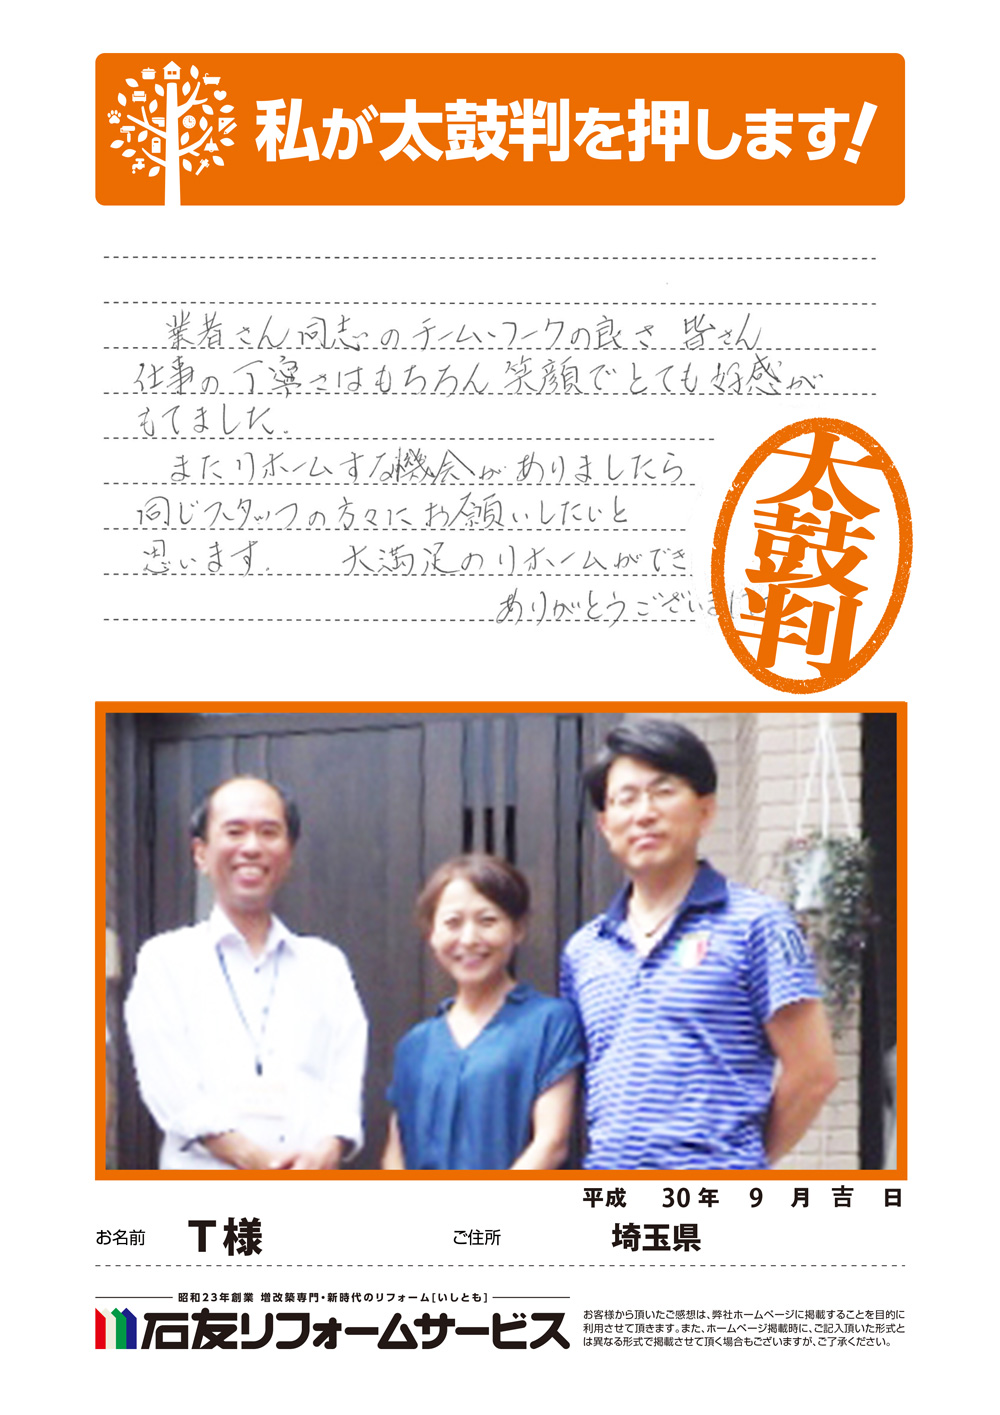 私が太鼓判を押します!
業者さん同志のチームワークの良さ 皆さん
仕事の丁寧さはもちろん 笑顔でとても好感が
もてました.
またリホームする機会がありましたら
同じスタッフの方々にお願いしたいと
思います. 大満足のリホームができ
ありがとうございまし
太鼓判
平成 30 年 9 月 吉 日
お名前 T様 ご住所 埼玉県
昭和23年創業 増改築専門・新時代のリフォーム[いしとも]
石友リフォームサービス
お客様から頂いたご感想は、弊社ホームページに掲載することを目的に
利用させて頂きます。また、ホームページ掲載時に、ご記入頂いた形式と
は異なる形式で掲載させて頂く場合もございますが、ご了承ください。